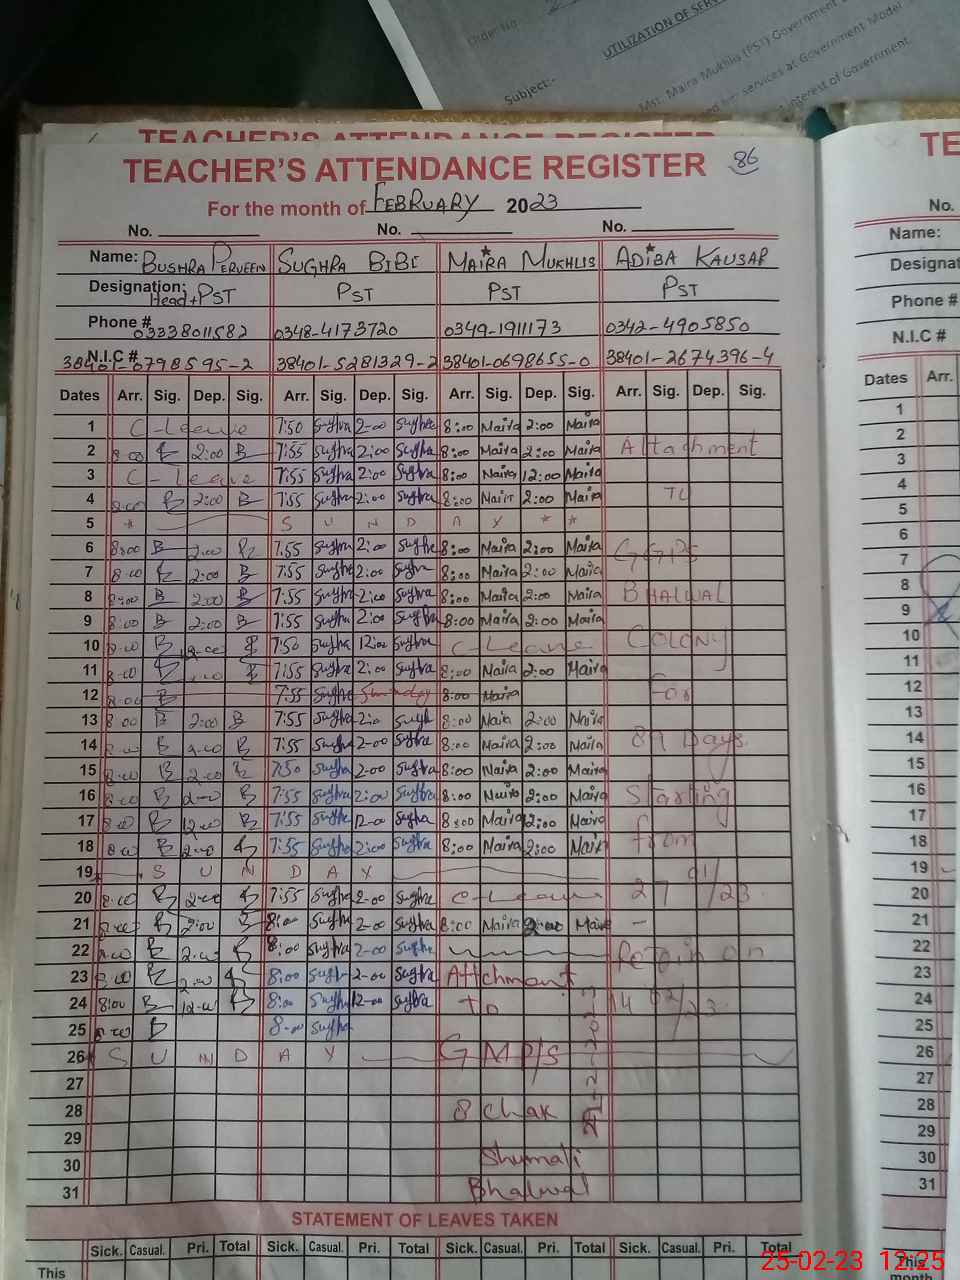 Order No
UTILIZATION OF SERV
Subject:-
Mst. Maira Mukhlis (PST) Government
her services at Government Model
interest of Government
TEACHER'S ATTENDANCE REGISTER
TEACHER'S ATTENDANCE REGISTER 86
For the month of FEBRUARY 2023
No. No. No.
Name: BUSHRA PERVEEN SUGHRA BIBI MAIRA MUKHLIS ADIBA KAUSAR
Designation: Head+PST PST PST PST
Phone # 03338011582 0348-4173720 0349-1911173 0342-4905850
N.I.C # 38401-0798595-2 38401-5281329-2 38401-0698655-0 38401-2674396-4
Dates Arr. Sig. Dep. Sig. Arr. Sig. Dep. Sig. Arr. Sig. Dep. Sig. Arr. Sig. Dep. Sig.
1 C-Leave 7:50 Sughra 2-00 Sughra 8:00 Maira 2:00 Maira
2 8:00 B 2:00 B 7:55 Sughra 2:00 Sughra 8:00 Maira 2:00 Maira Attachment
3 C-Leave 7:55 Sughra 2:00 Sughra 8:00 Maira 12:00 Maira
4 8:00 B 2:00 B 7:55 Sughra 2:00 Sughra 8:00 Maira 2:00 Maira To
5 * S U N D A Y * *
6 8:00 B 2:00 B 7:55 Sughra 2:00 Sughra 8:00 Maira 2:00 Maira GGPS
7 8:00 B 2:00 B 7:55 Sughra 2:00 Sughra 8:00 Maira 2:00 Maira
8 8:00 B 2:00 B 7:55 Sughra 2:00 Sughra 8:00 Maira 2:00 Maira BHALWAL
9 8:00 B 2:00 B 7:55 Sughra 2:00 Sughra 8:00 Maira 2:00 Maira
10 8:00 B 12:00 B 7:50 Sughra 12:00 Sughra C-Leave COLONY
11 8:00 B B 7:55 Sughra 2:00 Sughra 8:00 Maira 2:00 Maira
12 8:00 B 7:55 Sughra Sunday 8:00 Maira for
13 8:00 B 2:00 B 7:55 Sughra 2:00 Sughra 8:00 Maira 2:00 Maira
14 8:00 B 2:00 B 7:55 Sughra 2-00 Sughra 8:00 Maira 2:00 Maira 89 Days
15 8:00 B 2:00 B 7:50 Sughra 2-00 Sughra 8:00 Maira 2:00 Maira
16 8:00 B 2:00 B 7:55 Sughra 2:00 Sughra 8:00 Maira 2:00 Maira Starting
17 8:00 B 12:00 B 7:55 Sughra 12-00 Sughra 8:00 Maira 12:00 Maira
18 8:00 B 2:00 B 7:55 Sughra 2:00 Sughra 8:00 Maira 2:00 Maira from
19 S U N D A Y
20 8:00 B 2:00 B 7:55 Sughra 2-00 Sughra C-Leave 27/01/23
21 8:00 B 2:00 B 8:00 Sughra 2-00 Sughra 8:00 Maira 2:00 Maira -
22 8:00 B 2:00 B 8:00 Sughra 2-00 Sughra Rejoin on
23 8:00 B 2:00 B 8:00 Sughra 2-00 Sughra Attchment
24 8:00 B 12:00 B 8:00 Sughra 12-00 Sughra to 14/02/23
25 8:00 B 8-00 Sughra
26 S U N D A Y GMP/S
27
28 8 chak
29
30 Shumali
31 Bhalwal
STATEMENT OF LEAVES TAKEN
Sick. Casual. Pri. Total Sick. Casual. Pri. Total Sick. Casual. Pri. Total Sick. Casual. Pri. Total
This
TE
No.
Name:
Designat
Phone #
N.I.C #
Dates Arr.
1
2
3
4
5
6
7
8
9
10
11
12
13
14
15
16
17
18
19
20
21
22
23
24
25
26
27
28
29
30
31
This
month
25-02-23 12.25